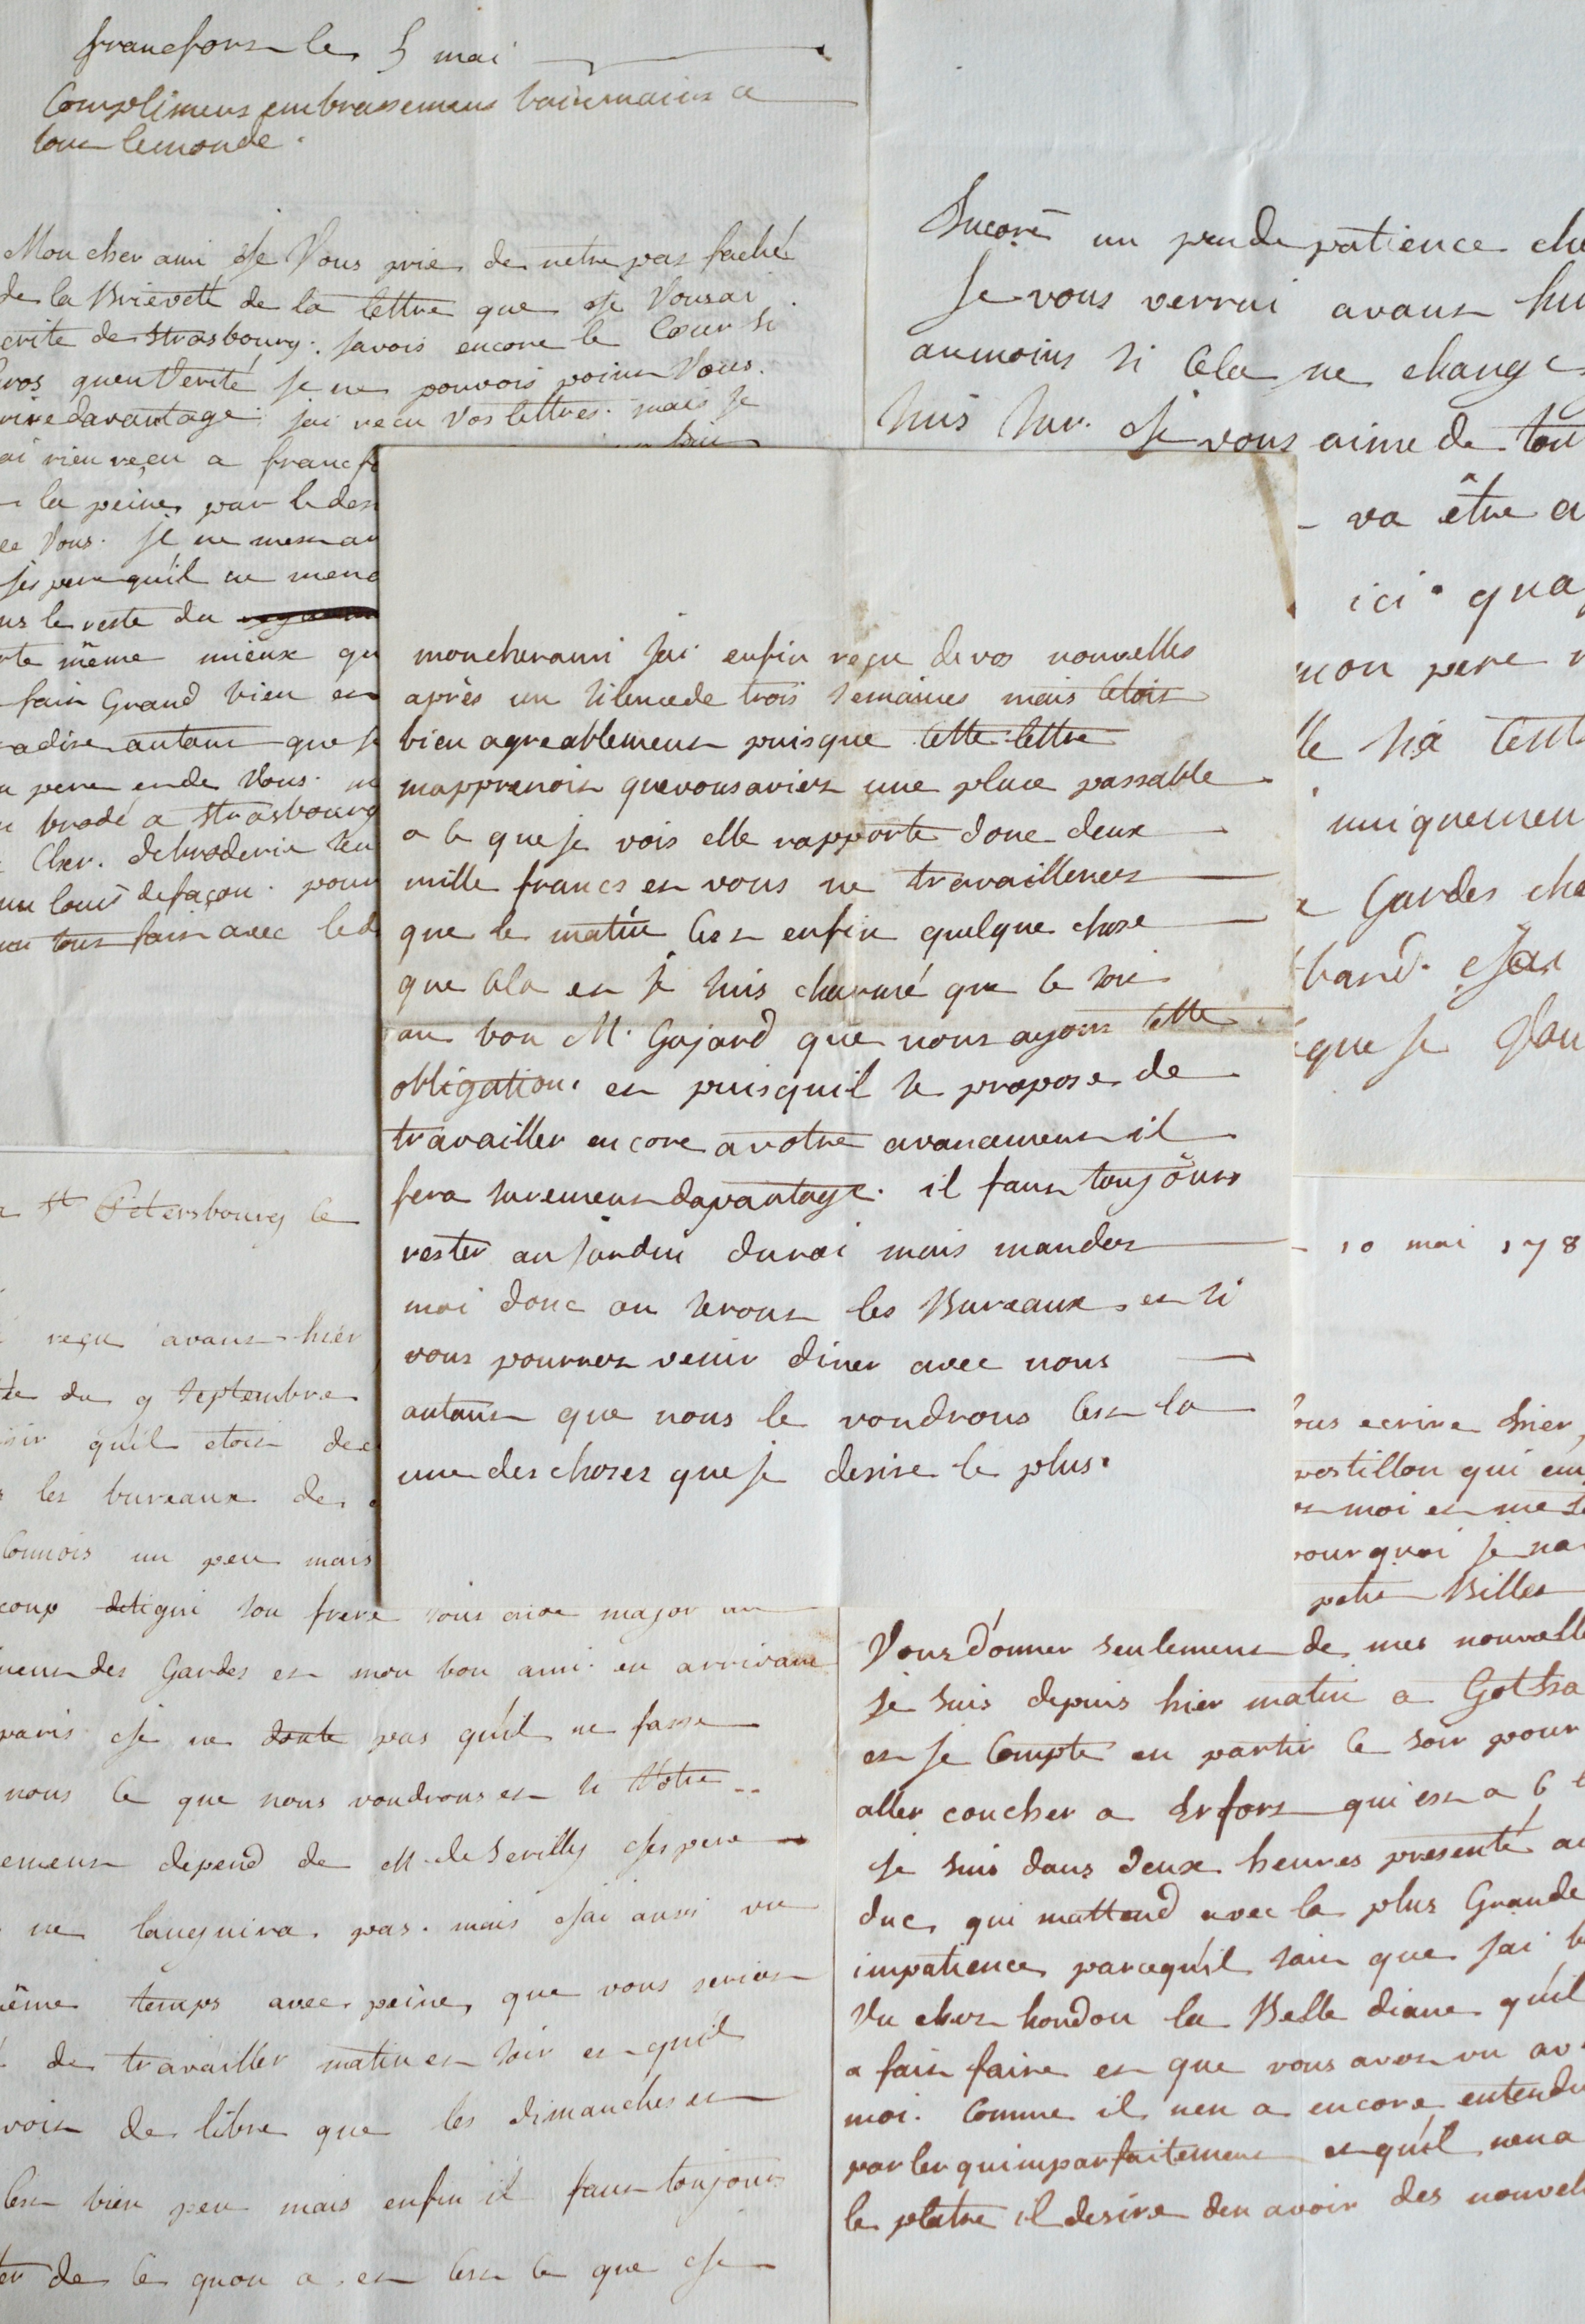 francfort le 5 mai
Complimens embrassemens baisemains a
tout lemonde.
Mon cher ami Je Vous prie de netre pas faché
de la Brieveté de la lettre que Je Vousai
crite de strasbourg. javois encore le Cœur si
gros quenverité je ne pouvois point Vous
rire davantage. jai recu Vos lettres. mais je
ai rien reçu a francfo
la peine, par le des
Vous. je ne
jespere quil ne
us le reste du
te même mieux qu
fait Grand bien et
adire autant que j
pere et de Vous.
brodé a strasbourg
Cher. debroderie
un louis defaçon. pour
tout fait avec le d
Encore un peu de patience che
Je vous verrai avant hu
aumoins si Cela ne change
suis sur. Je vous aime de tou
va être a
ici. qua
mon pere
le tent
uniquemen
Gardes che
band. Jai
que je Vou
moncherami jai enfin reçu devos nouvelles
après un silencede trois semaines mais Cetoit
bien agreablement puisque Cette lettre
mapprenoit quevousaviez une place passable
a ce queje vois elle rapporte donc deux
mille francs et vous ne travaillerez
que le matin Cest enfin quelque chose
que Cela et je suis charmé que ce soit
au bon M. Gojard que nous ayons Cette
obligation. et puisquil se propose de
travailler encore avotre avancement il
fera surement davantage. il faut toujours
rester aujardin duroi mais mandez
moi donc ou seront les Bureaux, et si
vous pourrez venir diner avec nous
autant que nous le voudrons Cest la
une des choses que je desire le plus.
a St Petersbourg le
reçu avant-hier
du 9 septembre
quil etoit de
les bureaux de
Connois un peu mais
coup son frere major
ment des Gardes et mon bon ami. en arrivant
paris Je ne doute pas quil ne fasse
nous ce que nous voudrons et si Votre
ement depend de M. de Serilly Jespere
ne languira pas. mais Jai aussi vu
même temps avec peine que vous seriez
de travailler matin et soir et quil
voit de libre que les dimanches et
Cest bien peu mais enfin il faut toujours
ter de ce quon a. et Cest ce que Je
10 mai 178
ous ecrire hier,
postillon qui em
moi et me
pourquoi je na
petit Billet
Vous donner seulement de mes nouvelle
je suis depuis hier matin a Gotha
et je Compte en partir ce soir pour
aller coucher a Erfort qui est a 6
je suis dans deux heures presenté au
duc, qui mattend avec la plus Grande
impatience parcequil sait que jai
Vu chez houdon la Belle diane quil
a fait faire et que vous avez vu av
moi. Comme il nen a encore entendu
parler quimparfaitement et quil nena
le platre il desire den avoir des nouvel